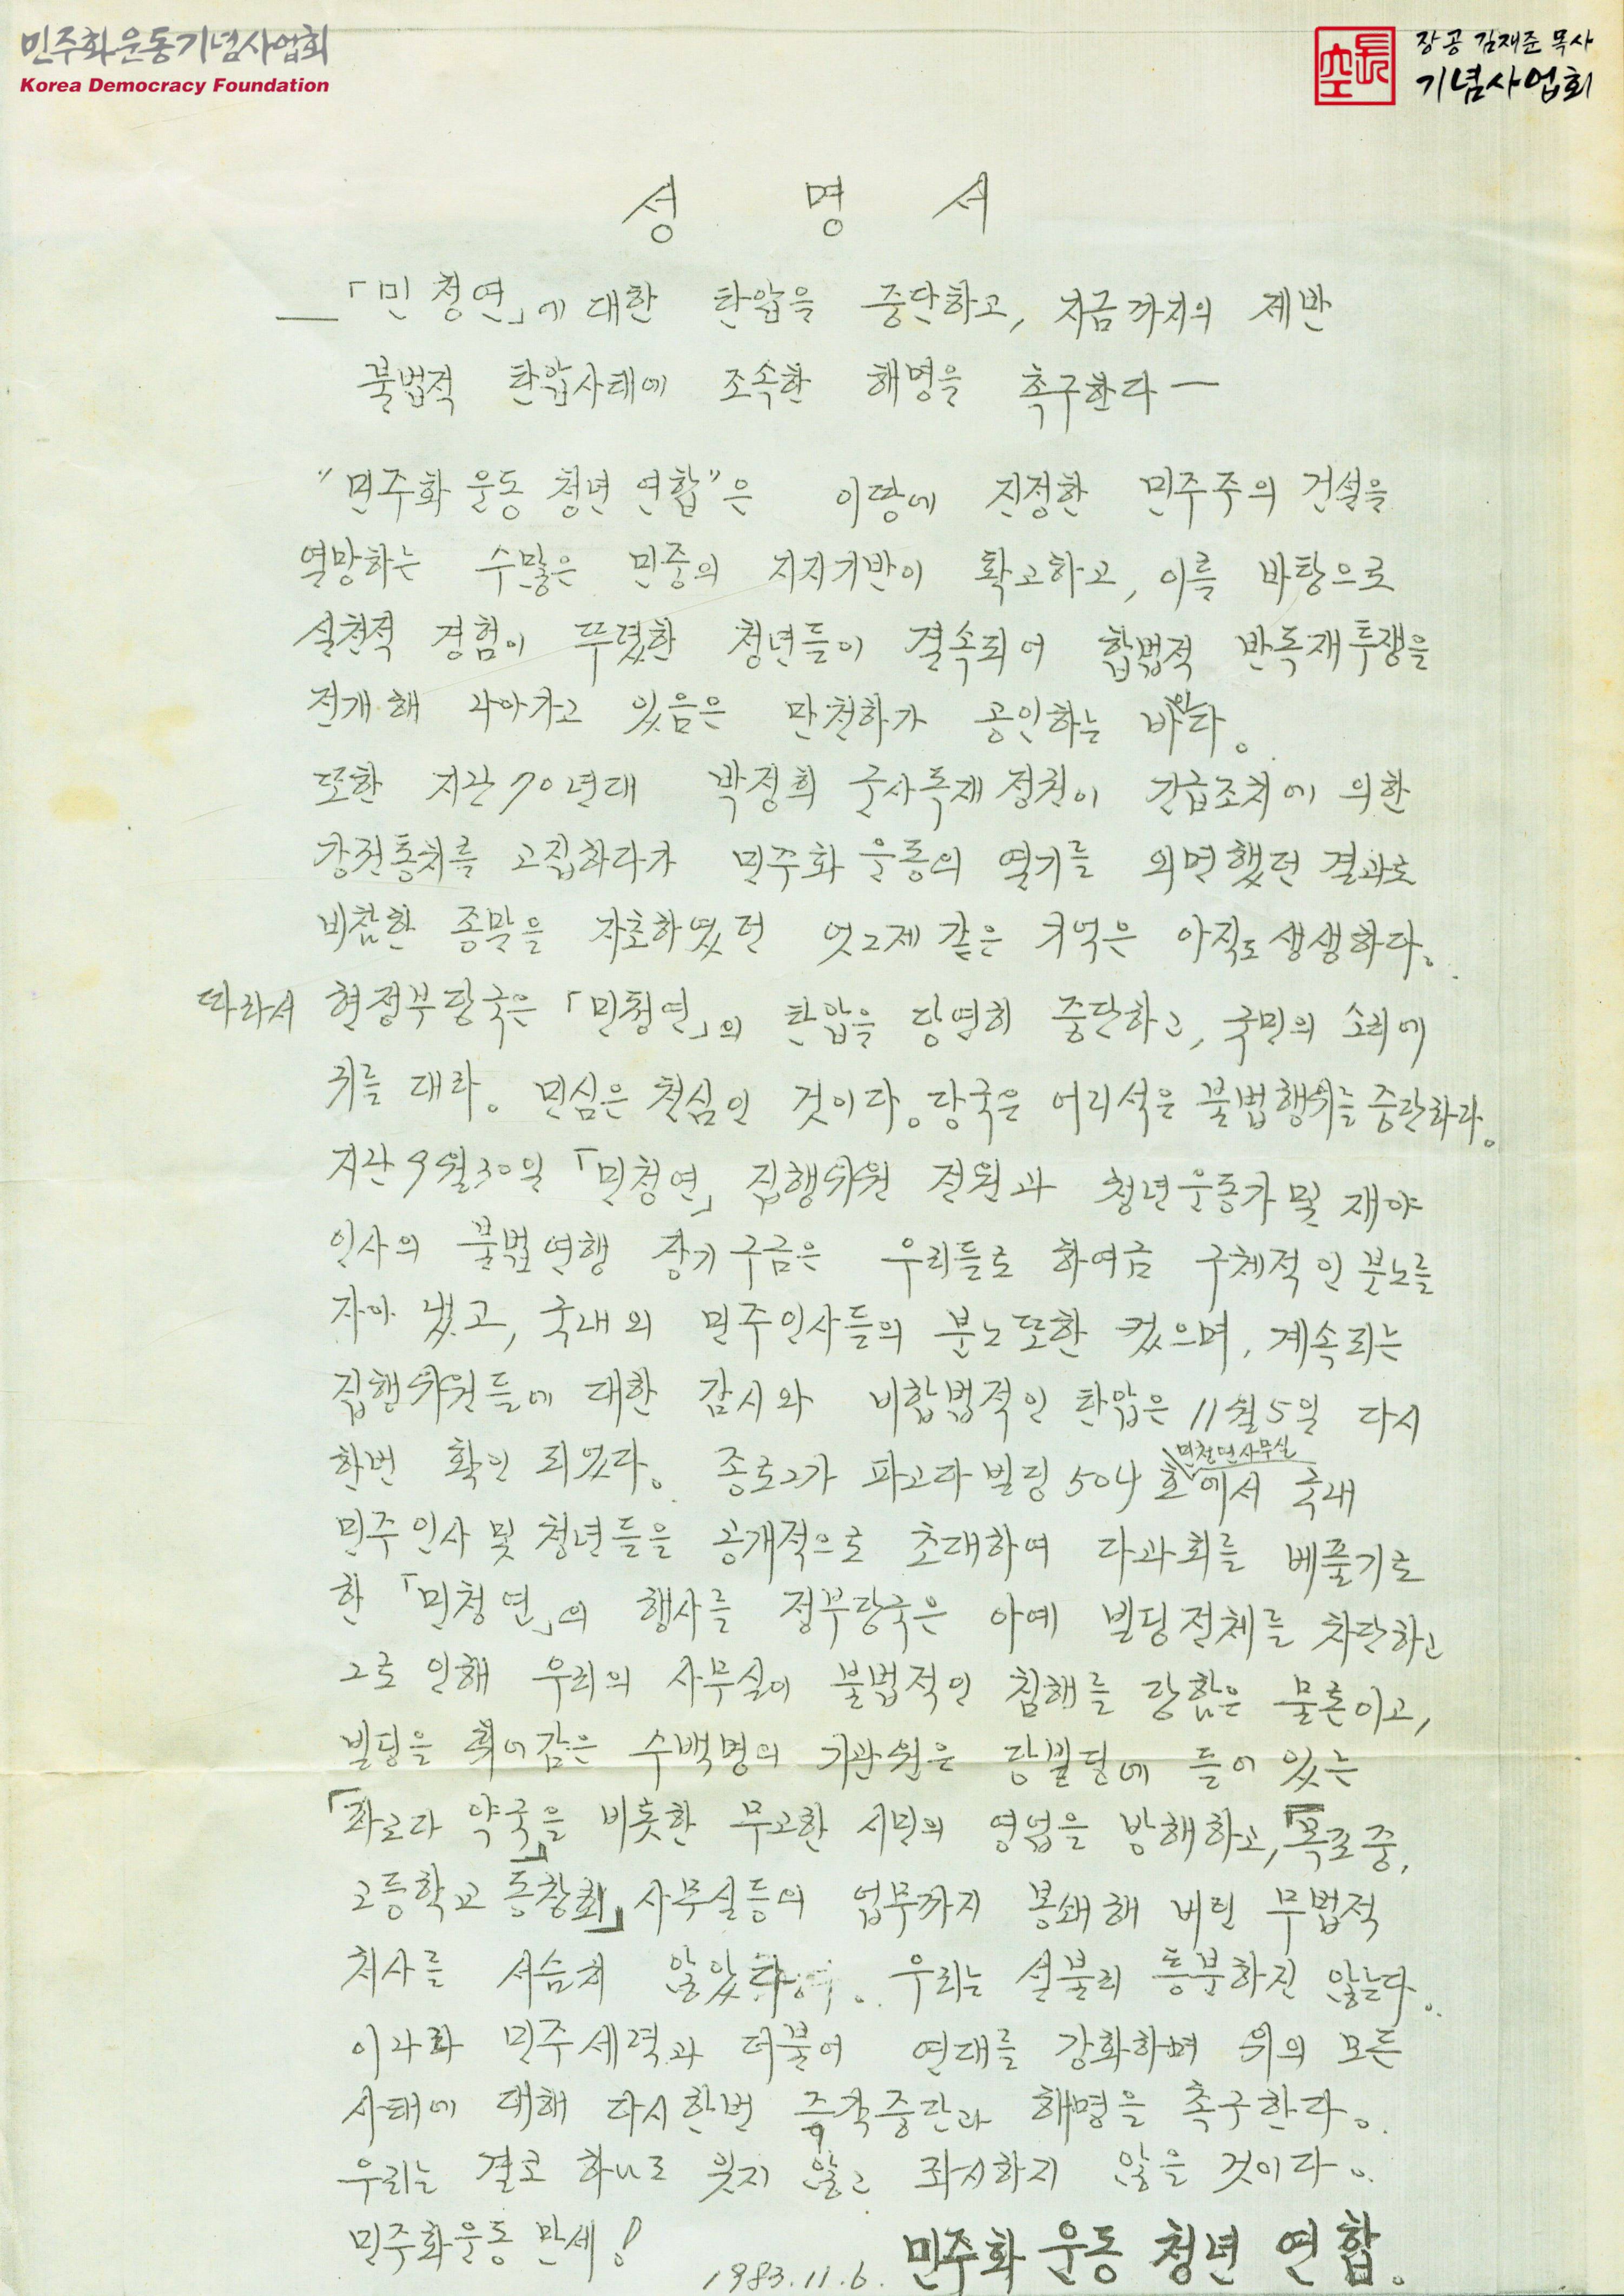 민주화운동기념사업회
Korea Democracy Foundation
長空
장공 김재준 목사
기념사업회
성 명 서
―「민청연」에 대한 탄압을 중단하고, 지금까지의 제반
불법적 탄압사태에 조속한 해명을 촉구한다―
"민주화 운동 청년 연합"은 이땅에 진정한 민주주의 건설을
열망하는 수많은 민중의 지지기반이 확고하고, 이를 바탕으로
실천적 경험이 뚜렸한 청년들이 결속되어 합법적 반독재투쟁을
전개해 나아가고 있음은 만천하가 공인하는 바다.
또한 지난 70년대 박정희 군사독재 정권이 긴급조치에 의한
강권통치를 고집하다가 민주화 운동의 열기를 외면했던 결과로
비참한 종말을 자초하였던 엇그제 같은 기억은 아직도 생생하다.
따라서 현정부당국은 「민청연」의 탄압을 당연히 중단하고, 국민의 소리에
귀를 대라. 민심은 천심인 것이다. 당국은 어리석은 불법행위를 중단하라.
지난 9월30일 「민청연」 집행위원 전원과 청년운동가 및 재야
인사의 불법연행 장기구금은 우리들로 하여금 구체적인 분노를
자아 냈고, 국내외 민주인사들의 분노또한 컸으며, 계속되는
집행위원들에 대한 감시와 비합법적인 탄압은 11월5일 다시
한번 확인 되었다. 종로2가 파고다 빌딩 504호 민청연사무실에서 국내
민주인사 및 청년들을 공개적으로 초대하여 다과회를 베풀기로
한 「민청연」의 행사를 정부당국은 아예 빌딩전체를 차단하고
그로 인해 우리의 사무실이 불법적인 침해를 당함은 물론이고,
빌딩을 휘어감은 수백명의 기관원은 당빌딩에 들어 있는
「파고다 약국」을 비롯한 무고한 시민의 영업을 방해하고, 「목포중,
고등학교 동창회」 사무실등의 업무까지 봉쇄해 버린 무법적
처사를 서슴치 않았다. 우리는 섣불리 흥분하진 않는다.
이나라 민주세력과 더불어 연대를 강화하며 위의 모든
사태에 대해 다시한번 즉각중단과 해명을 촉구한다.
우리는 결코 하나도 잊지 않고 좌시하지 않을 것이다.
민주화운동 만세!
1983.11.6. 민주화 운동 청년 연합.